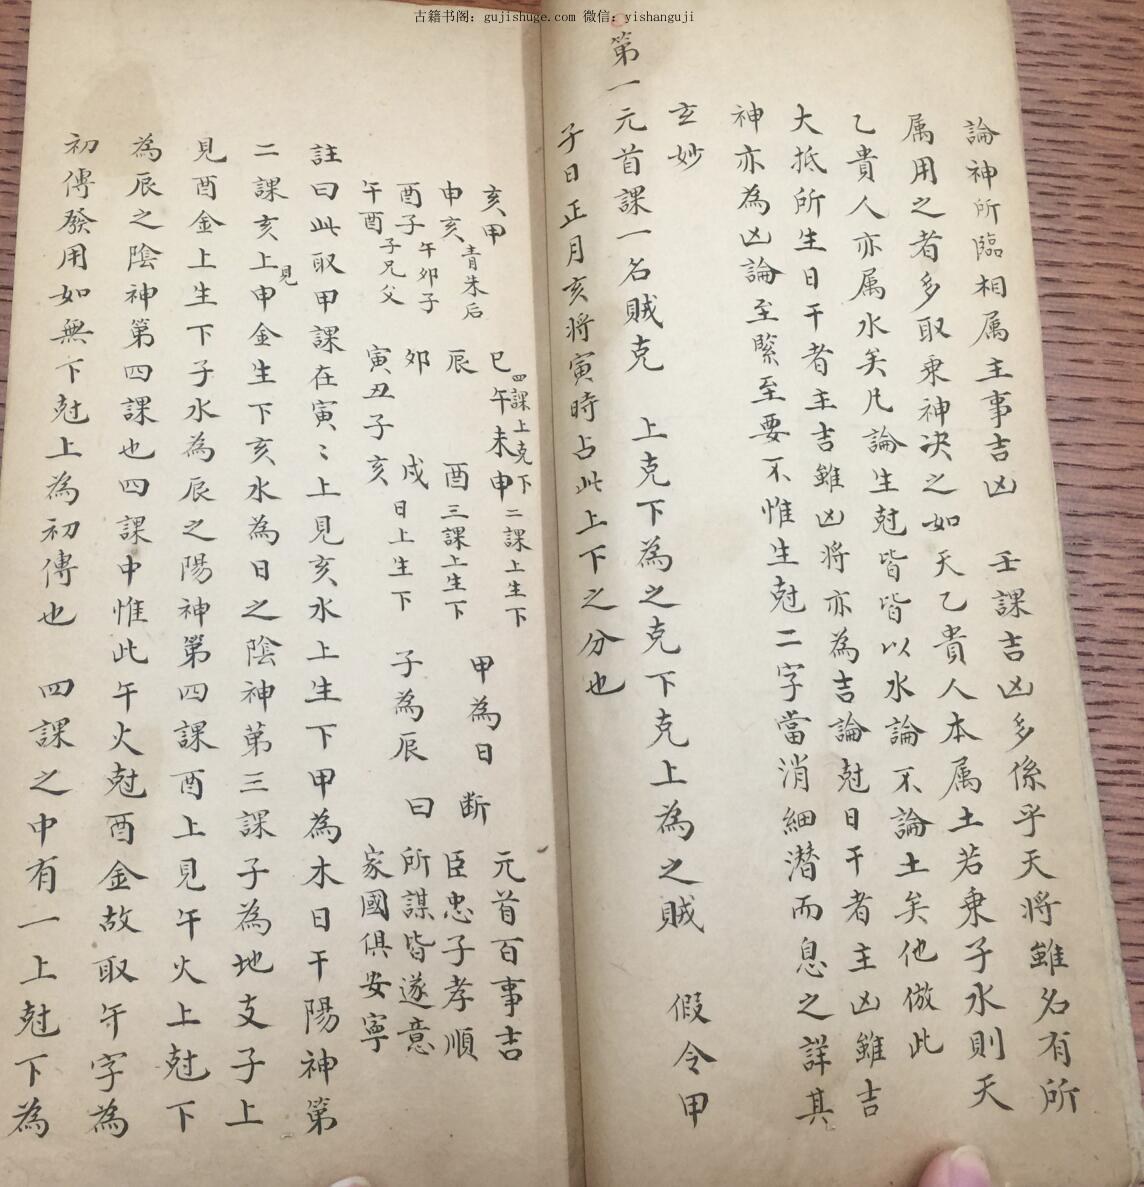 古籍书阁：gujishuge.com 微信：yishanguji
論神所臨相属主事吉凶　壬課吉凶多係乎天將雖名有所
属用之者多取乘神决之如天乙貴人本属土若乘子水則天
乙貴人亦属水矣凡論生尅皆皆以水論不論土矣他倣此
大抵所生日干者主吉雖凶將亦為吉論尅日干者主凶雖吉
神亦為凶論至緊至要不惟生尅二字當消細潜而息之詳其
玄妙
第一元首課一名賊克　上克下為之克下克上為之賊　假令甲
子日正月亥將寅時占此上下之分也
亥甲
申亥
酉子
午酉
青朱后
午卯子
子兄父
四課上克下
巳午未申
二課上生下
辰
酉
三課上生下
卯
戌
日上生下
寅丑子亥
甲為日
子為辰
断
曰
元首百事吉
臣忠子孝順
所謀皆遂意
家國俱安寧
註曰此取甲課在寅〻上見亥水上生下甲為木日干陽神第
二課亥上見申金生下亥水為日之陰神第三課子為地支子上
見酉金上生下子水為辰之陽神第四課酉上見午火上尅下
為辰之陰神第四課也四課中惟此午火尅酉金故取午字為
初傳發用如無下尅上為初傳也　四課之中有一上尅下為